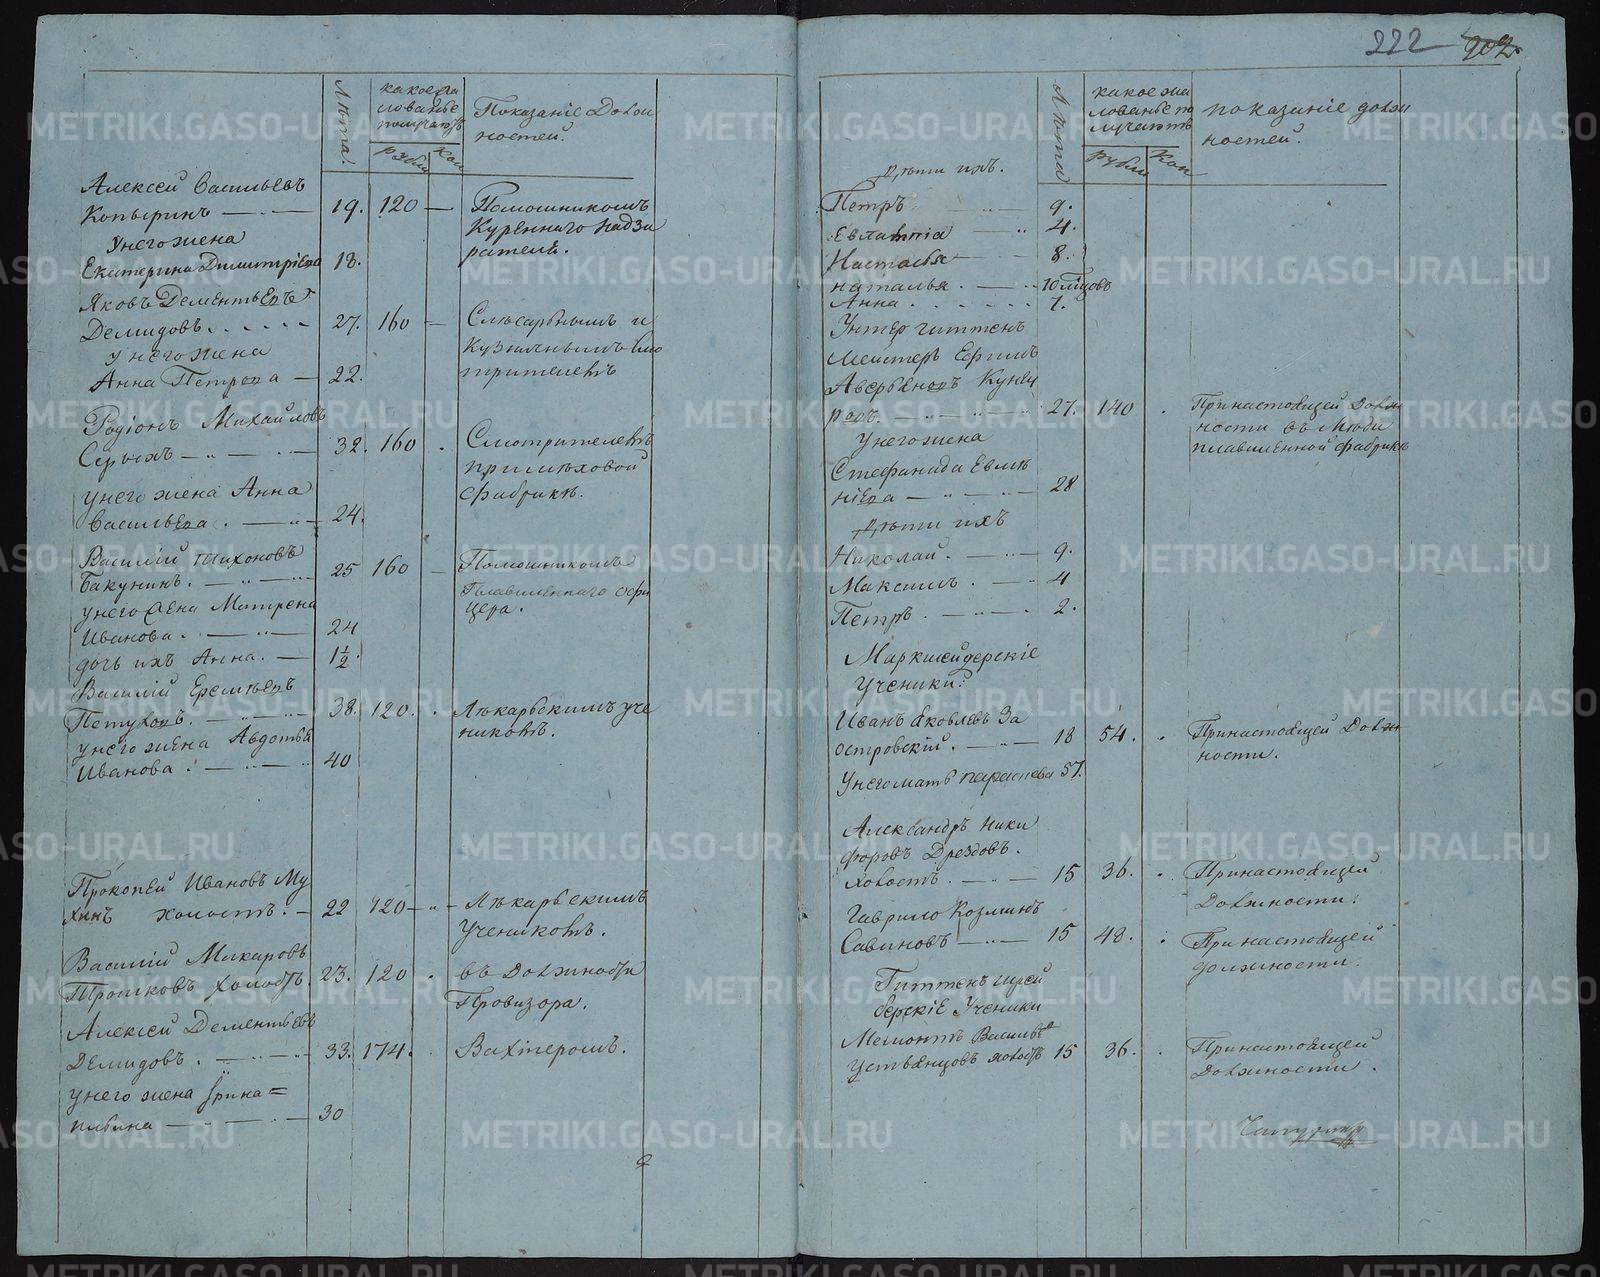 Лѣта.
какое жа
лованье
получаютъ
Рубли
Коп
Показаніе Долж
ностей.
Алексей Васильевъ
Копыринъ 19. 120 Помошникомъ
Куреннаго Надзи
рателя.
У него жена
Екатерина Димитріева 18.
Яковъ Дементьевъ
Демидовъ. 27. 160 Слѣсарнымъ и
Кузнечнымъ смо
трителемъ
У него жена
Анна Петрова 22.
Родіонъ Михайловъ
Серыхъ 32. 160 Смотрителемъ
при мѣховой
фабрикѣ.
у него жена Анна
Васильева. 24.
Василій Тихоновъ
Бакунинъ. 25 160 Помошникомъ
Плавиленнаго офи
цера.
у него жена Матрена
Иванова. 24
дочь ихъ Анна. 1½.
Василій Еремѣевъ
Петуховъ. 38. 120. Лѣкарьскимъ уче
никомъ.
у него жена Авдотья
Иванова. 40
Прокопей Ивановъ Му
хинъ холостъ. 22 120 Лѣкарьскимъ
Ученикомъ.
Василій Макаровъ
холостъ. 23. 120 въ должности
Провизора.
Алексей Дементьевъ
Демидовъ. 33. 174. Вахтеромъ.
у него жена Ирина
30
222 202.
Лѣта
какое жа
лованье по
лучаютъ
Рубли
Коп
показаніе долж
ностей.
Дѣти ихъ.
Петръ 9.
Евлампія 4.
Настасья 8.
Наталья. 10
Анна. 1.
Унтер гиттенъ
мейстеръ Ефимъ
Аверьяновъ
27. 140 При настоящей долж
ности въ мѣди
плавиленной фабрикѣ
У него жена
Стефанида Евмѣ
ніева 28
Дѣти ихъ
Николай. 9.
Максимъ. 4
Петръ. 2.
Маркшейдерскіе
Ученики:
Иванъ Яковлевъ За
островскій. 18 54. При настоящей долж
ности.
У него мать Парасковья 57.
Александръ Ники
форовъ Дрездовъ.
холостъ. 15 36. При настоящей
Должности.
Гаврило Козминъ
Савиновъ 15 48. При настоящей
должности.
Гиттенъ
Ученики
Василье
Устьянцовъ холостъ 15 36. При настоящей
Должности.
METRIKI.GASO-URAL.RU